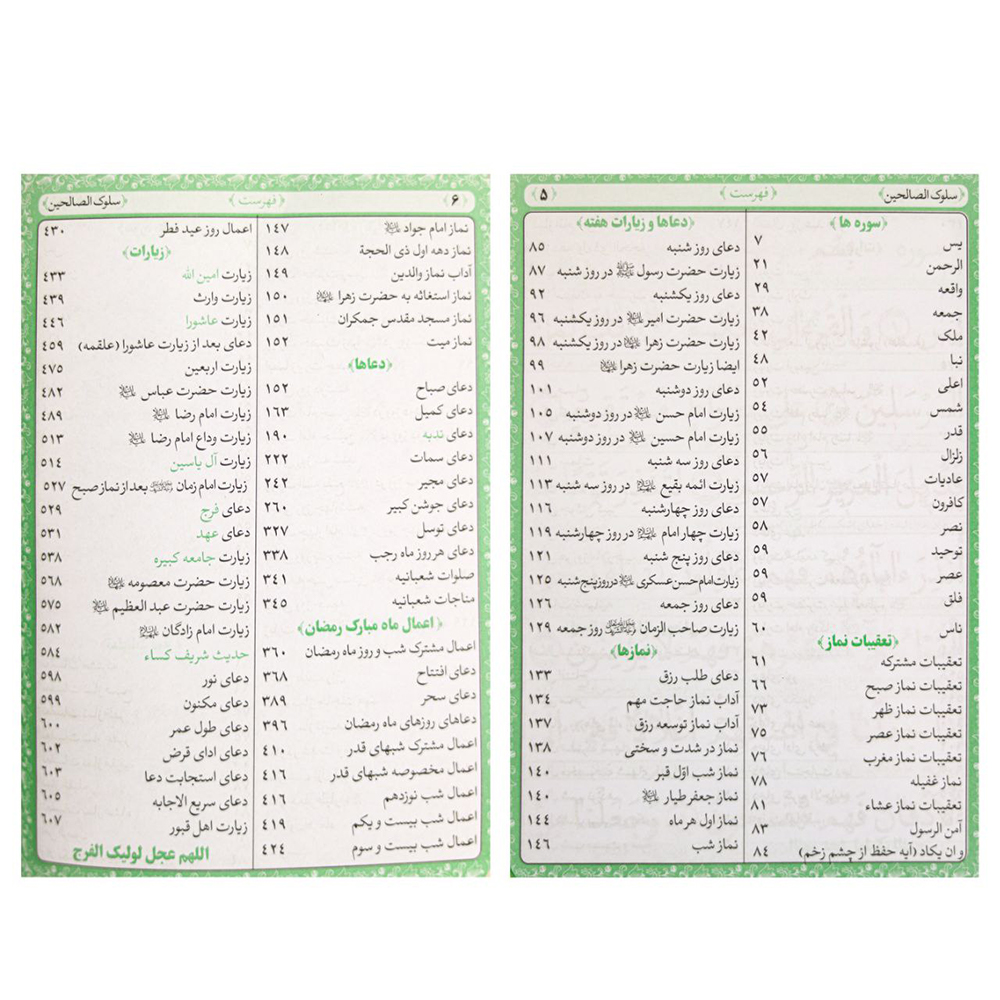 سلوک الصالحین
فهرست
۵
سوره ها
یس ۷
الرحمن ۲۱
واقعه ۲۹
جمعه ۳۸
ملک ۴۲
نبا ۴۸
اعلی ۵۲
شمس ۵۴
قدر ۵۵
زلزال ۵۶
عادیات ۵۷
کافرون ۵۷
نصر ۵۸
توحید ۵۹
عصر ۵۹
فلق ۵۹
ناس ۶۰
تعقیبات نماز
تعقیبات مشترکه ۶۱
تعقیبات نماز صبح ۶۶
تعقیبات نماز ظهر ۷۳
تعقیبات نماز عصر ۷۵
تعقیبات نماز مغرب ۷۶
نماز غفیله ۷۸
تعقیبات نماز عشاء ۸۱
آمن الرسول ۸۳
و ان یکاد (آیه حفظ از چشم زخم) ۸۴
دعاها و زیارات هفته
دعای روز شنبه ۸۵
زیارت حضرت رسول در روز شنبه ۸۷
دعای روز یکشنبه ۹۲
زیارت حضرت امیر در روز یکشنبه ۹۶
زیارت حضرت زهرا در روز یکشنبه ۹۸
ایضا زیارت حضرت زهرا ۹۹
دعای روز دوشنبه ۱۰۱
زیارت امام حسن در روز دوشنبه ۱۰۵
زیارت امام حسین در روز دوشنبه ۱۰۷
دعای روز سه شنبه ۱۱۱
زیارت ائمه بقیع در روز سه شنبه ۱۱۳
دعای روز چهارشنبه ۱۱۶
زیارت چهار امام در روز چهارشنبه ۱۱۹
دعای روز پنج شنبه ۱۲۱
زیارت امام حسن عسکری در روز پنج شنبه ۱۲۵
دعای روز جمعه ۱۲۶
زیارت صاحب الزمان روز جمعه ۱۲۹
نمازها
دعای طلب رزق ۱۳۳
آداب نماز حاجت مهم ۱۳۴
آداب نماز توسعه رزق ۱۳۷
نماز در شدت و سختی ۱۳۸
نماز شب اوّل قبر ۱۴۰
نماز جعفر طیار ۱۴۰
نماز اول هر ماه ۱۴۴
نماز شب ۱۴۶
۶
فهرست
سلوک الصالحین
نماز امام جواد ۱۴۷
نماز دهه اول ذی الحجة ۱۴۸
آداب نماز والدین ۱۴۹
نماز استغاثه به حضرت زهرا ۱۵۰
نماز مسجد مقدس جمکران ۱۵۱
نماز میت ۱۵۲
دعاها
دعای صباح ۱۵۲
دعای کمیل ۱۶۳
دعای ندبه ۱۹۰
دعای سمات ۲۲۲
دعای مجیر ۲۴۲
دعای جوشن کبیر ۲۶۰
دعای توسل ۳۲۷
دعای هر روز ماه رجب ۳۳۸
صلوات شعبانیه ۳۴۱
مناجات شعبانیه ۳۴۵
اعمال ماه مبارک رمضان
اعمال مشترک شب و روز ماه رمضان ۳۶۰
دعای افتتاح ۳۶۸
دعای سحر ۳۸۹
دعاهای روزهای ماه رمضان ۳۹۶
اعمال مشترک شبهای قدر ۴۱۰
اعمال مخصوصه شبهای قدر ۴۱۶
اعمال شب نوزدهم ۴۱۶
اعمال شب بیست و یکم ۴۱۹
اعمال شب بیست و سوم ۴۲۴
اعمال روز عید فطر ۴۳۰
زیارات
زیارت امین الله ۴۳۳
زیارت وارث ۴۳۹
زیارت عاشورا ۴۴۶
دعای بعد از زیارت عاشورا (علقمه) ۴۵۹
زیارت اربعین ۴۷۵
زیارت حضرت عباس ۴۸۲
زیارت امام رضا ۴۸۹
زیارت وداع امام رضا ۵۱۳
زیارت آل یاسین ۵۱۴
زیارت امام زمان بعد از نماز صبح ۵۲۷
دعای فرج ۵۲۹
دعای عهد ۵۳۱
زیارت جامعه کبیره ۵۳۸
زیارت حضرت معصومه ۵۶۸
زیارت حضرت عبد العظیم ۵۷۵
زیارت امام زادگان ۵۸۲
حدیث شریف کساء ۵۸۴
دعای نور ۵۹۸
دعای مکنون ۵۹۹
دعای طول عمر ۶۰۰
دعای ادای قرض ۶۰۲
دعای استجابت دعا ۶۰۳
دعای سریع الاجابه ۶۰۵
زیارت اهل قبور ۶۰۷
اللهم عجل لولیک الفرج